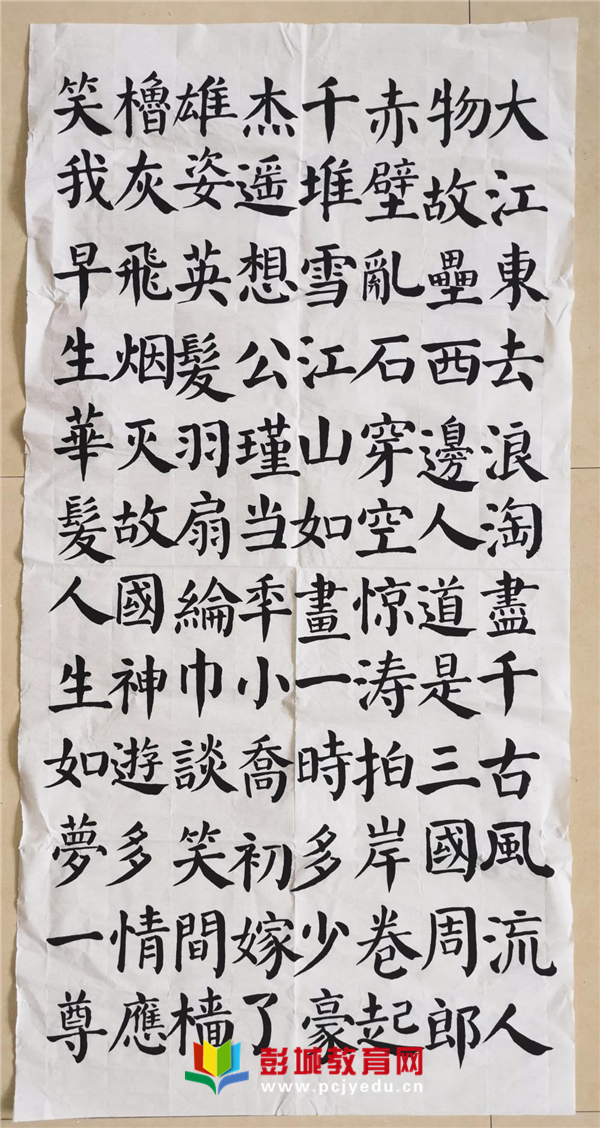 大江東去浪淘盡千古風流人
物故壘西邊人道是三國周郎
赤壁亂石穿空惊涛拍岸卷起
千堆雪江山如畫一時多少豪
杰遥想公瑾当秊小喬初嫁了
雄姿英髮羽扇綸巾談笑間樯
櫓灰飛烟灭故國神遊多情應
笑我早生華髮人生如夢一尊
彭城教育网
www.pcjyedu.cn